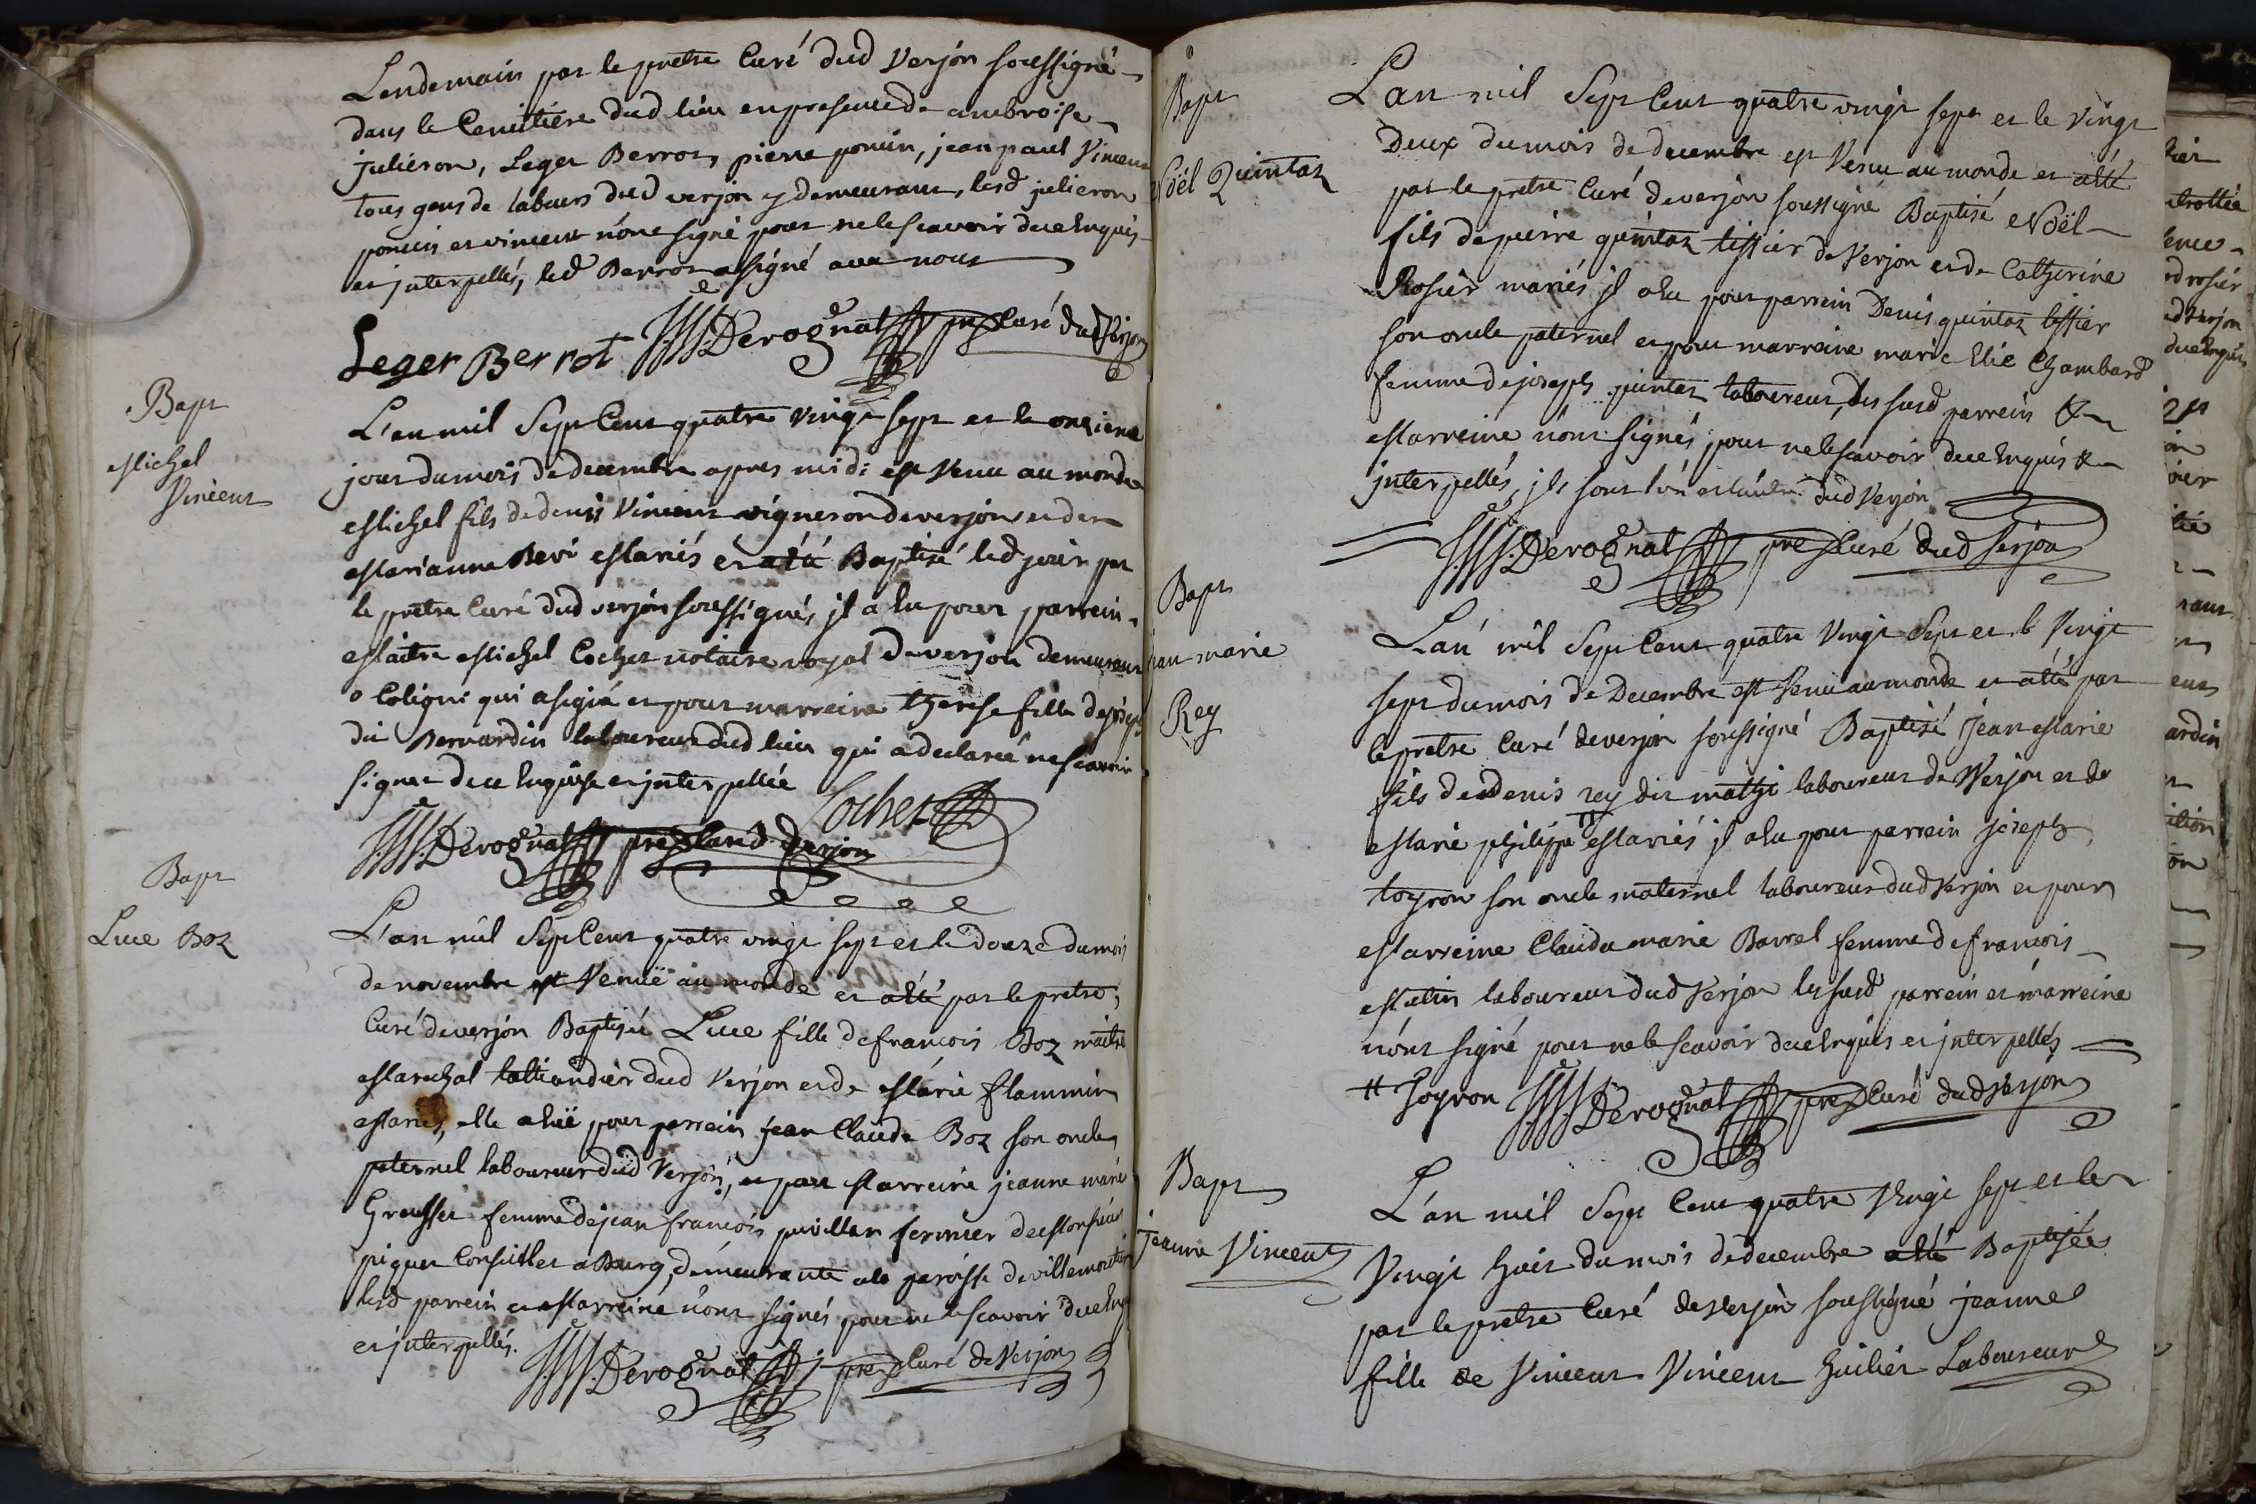 Lendemain par le pretre Curé dud Verjon soussigné
dans le Cemitiere dud lieu en presence de ambroise
julieron, Leger Berrot, pierre poncin, jean paul Vincent
tous gens de labeurs dud verjon y demeurant, lesd julieron
poncin et vincent n'ont signé pour ne le scavoir de ce Enquis
et jnterpellés, led Berrot a signé avec nous
Leger Berrot Derognat pre Curé dud Verjon
Bapt
Michel
Vincent
L'an mil Sept Cent quatre vingt sept et le onzieme
jour du mois de decembre apres midi est Venu au monde
Michel fils de denis Vincent vigneron de verjon et de
Marianne Revi Mariés et a été Baptisé led jour par
le pretre Curé dud verjon soussigné, jl a Eu pour parrein
Maitre Michel Cochet notaire royal de verjon demeurant
a Coligni qui a signé et pour marreine therese fille de joseph
du Bernardin laboureur dud lieu qui a declaré ne scavoir
signer de ce Enquise et jnterpellée
Cochet
Derognat pre Curé d verjon
Bapt
Luce Boz
L'an mil Sept Cent quatre vingt sept et le douze du mois
de novembre est Venuë au monde et a été par le pretre
Curé de verjon Baptisée Luce fille de francois Boz maitre
Marechal tallandier dud Verjon et de Marie flammin
Mariés, elle a Euë pour parrein jean Claude Boz son oncle
paternel laboureur dud Verjon, et pour Marreine jeanne marie
Grosset femme de jean francois puvillan fermier de Monsieur
piquet Conseiller a Bourg, demeurante a la paroisse de villemoutier
lesd parrein et Marreine n'ont signés pour ne le scavoir de ce Enquis
et jnterpellés.
Derognat pre Curé de Verjon
Bapt
Noël Quintaz
L'an mil Sept Cent quatre vingt sept et le Vingt
Deux du mois de decembre est Venu au monde et a été
par le pretre Curé de verjon soussigné Baptisé Noël
fils de pierre quintaz tissier de Verjon et de Catherine
Rosier mariés jl a Eu pour parrein Denis quintaz tissier
son oncle paternel et pour marreine marie Elie Chambard
femme de joseph quintaz laboureur, les susd parrein &
Marreine n'ont signés pour ne le scavoir de ce Enquis &
jnterpellés, jls sont l'un et l'autre dud Verjon
Derognat pre Curé dud Verjon
Bapt
jean marie
Rey
L'an mil Sept Cent quatre Vingt Sept et le Vingt
sept du mois de Decembre est Venu au monde et a été par
le pretre Curé de verjon soussigné Baptisé Jean Marie
fils de denis rey dit mathi laboureur de Verjon et de
Marie philippe Mariés jl a Eu pour parrein joseph
toyron son oncle maternel laboureur dud Verjon et pour
Marreine Clauda marie Barrel femme de francois
Mutin laboureur dud Verjon les susd parrein et marreine
n'ont signé pour ne le scavoir de ce Enquis et jnterpellés
# Joyron Derognat pre Curé dud Verjon
Bapt
jeanne Vincent
L'an mil Sept Cent quatre Vingt sept et le
Vingt huit du mois de decembre a été Baptisée
par le pretre Curé de Verjon soussigné jeanne
fille de Vincent Vincent huilier Laboureur